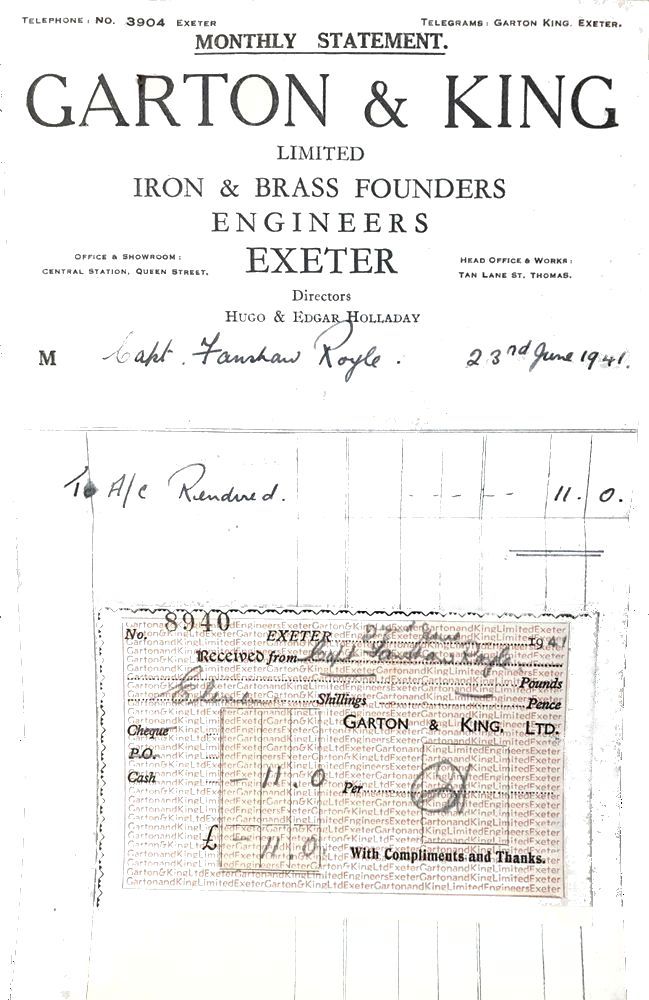 TELEPHONE: NO. 3904 EXETER TELEGRAMS: GARTON KING. EXETER.
MONTHLY STATEMENT.
GARTON & KING
LIMITED
IRON & BRASS FOUNDERS
ENGINEERS
OFFICE & SHOWROOM: EXETER HEAD OFFICE & WORKS:
CENTRAL STATION, QUEEN STREET. TAN LANE ST. THOMAS.
Directors
HUGO & EDGAR HOLLADAY
M Capt. Fanshaw Royle. 23rd June 1941.
To A/c Rendered. - - - - - 11. 0.
No. 8940 EXETER 23rd June 1941
Received from Capt Fanshaw Royle
Pounds
Eleven Shillings Pence
GARTON & KING, LTD.
Cheque
P.O.
Cash - 11. 0 Per
£ - 11. 0.
With Compliments and Thanks.